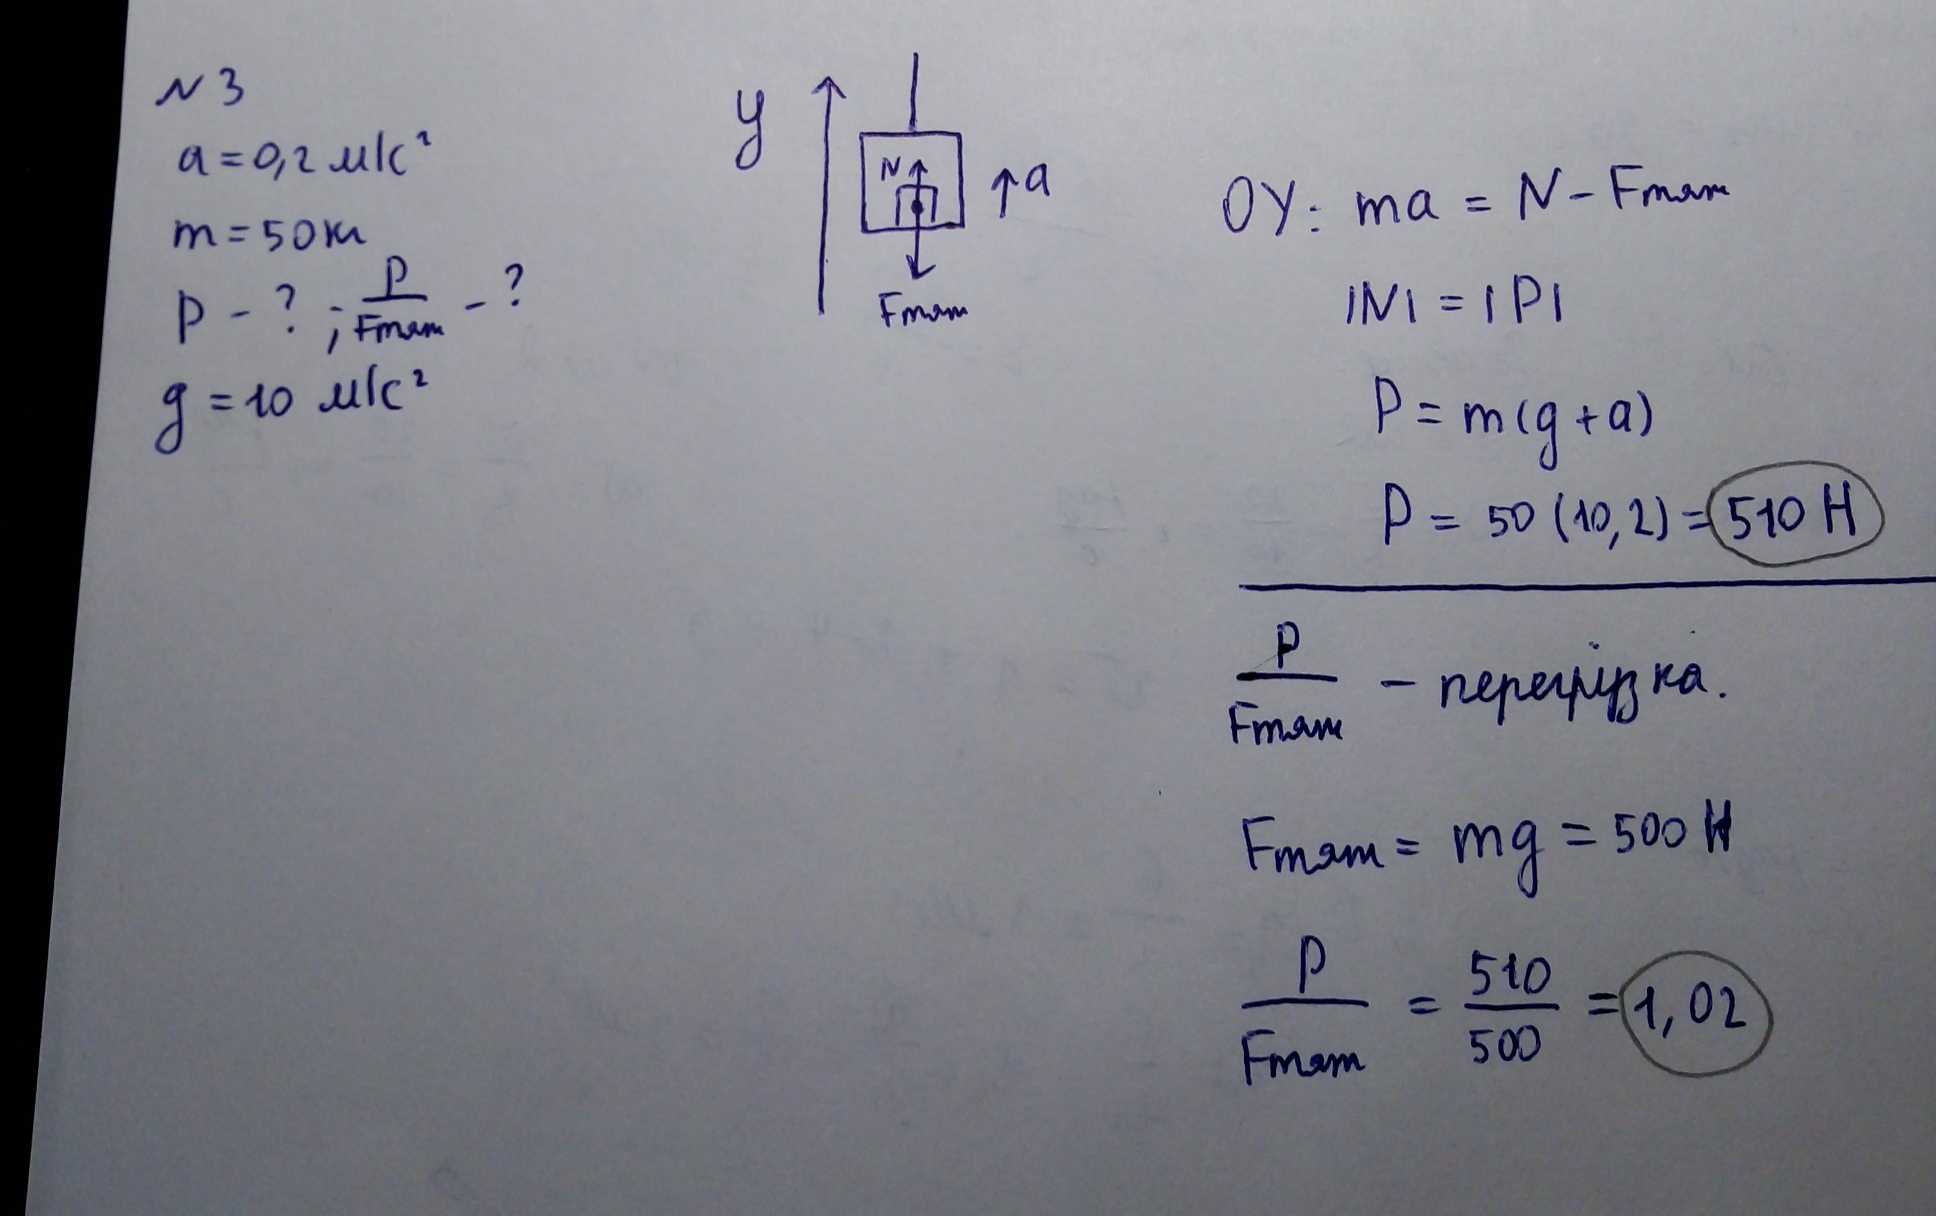 N 3
a = 0,2 м/с²
m = 50 кг
P - ? ; P/Fтяж - ?
g = 10 м/с²
y
N
a
Fтяж
OY: ma = N - Fтяж
|N| = |P|
P = m(g + a)
P = 50 (10,2) = 510 Н
P/Fтяж - перегрузка.
Fтяж = mg = 500 Н
P/Fтяж = 510/500 = 1,02